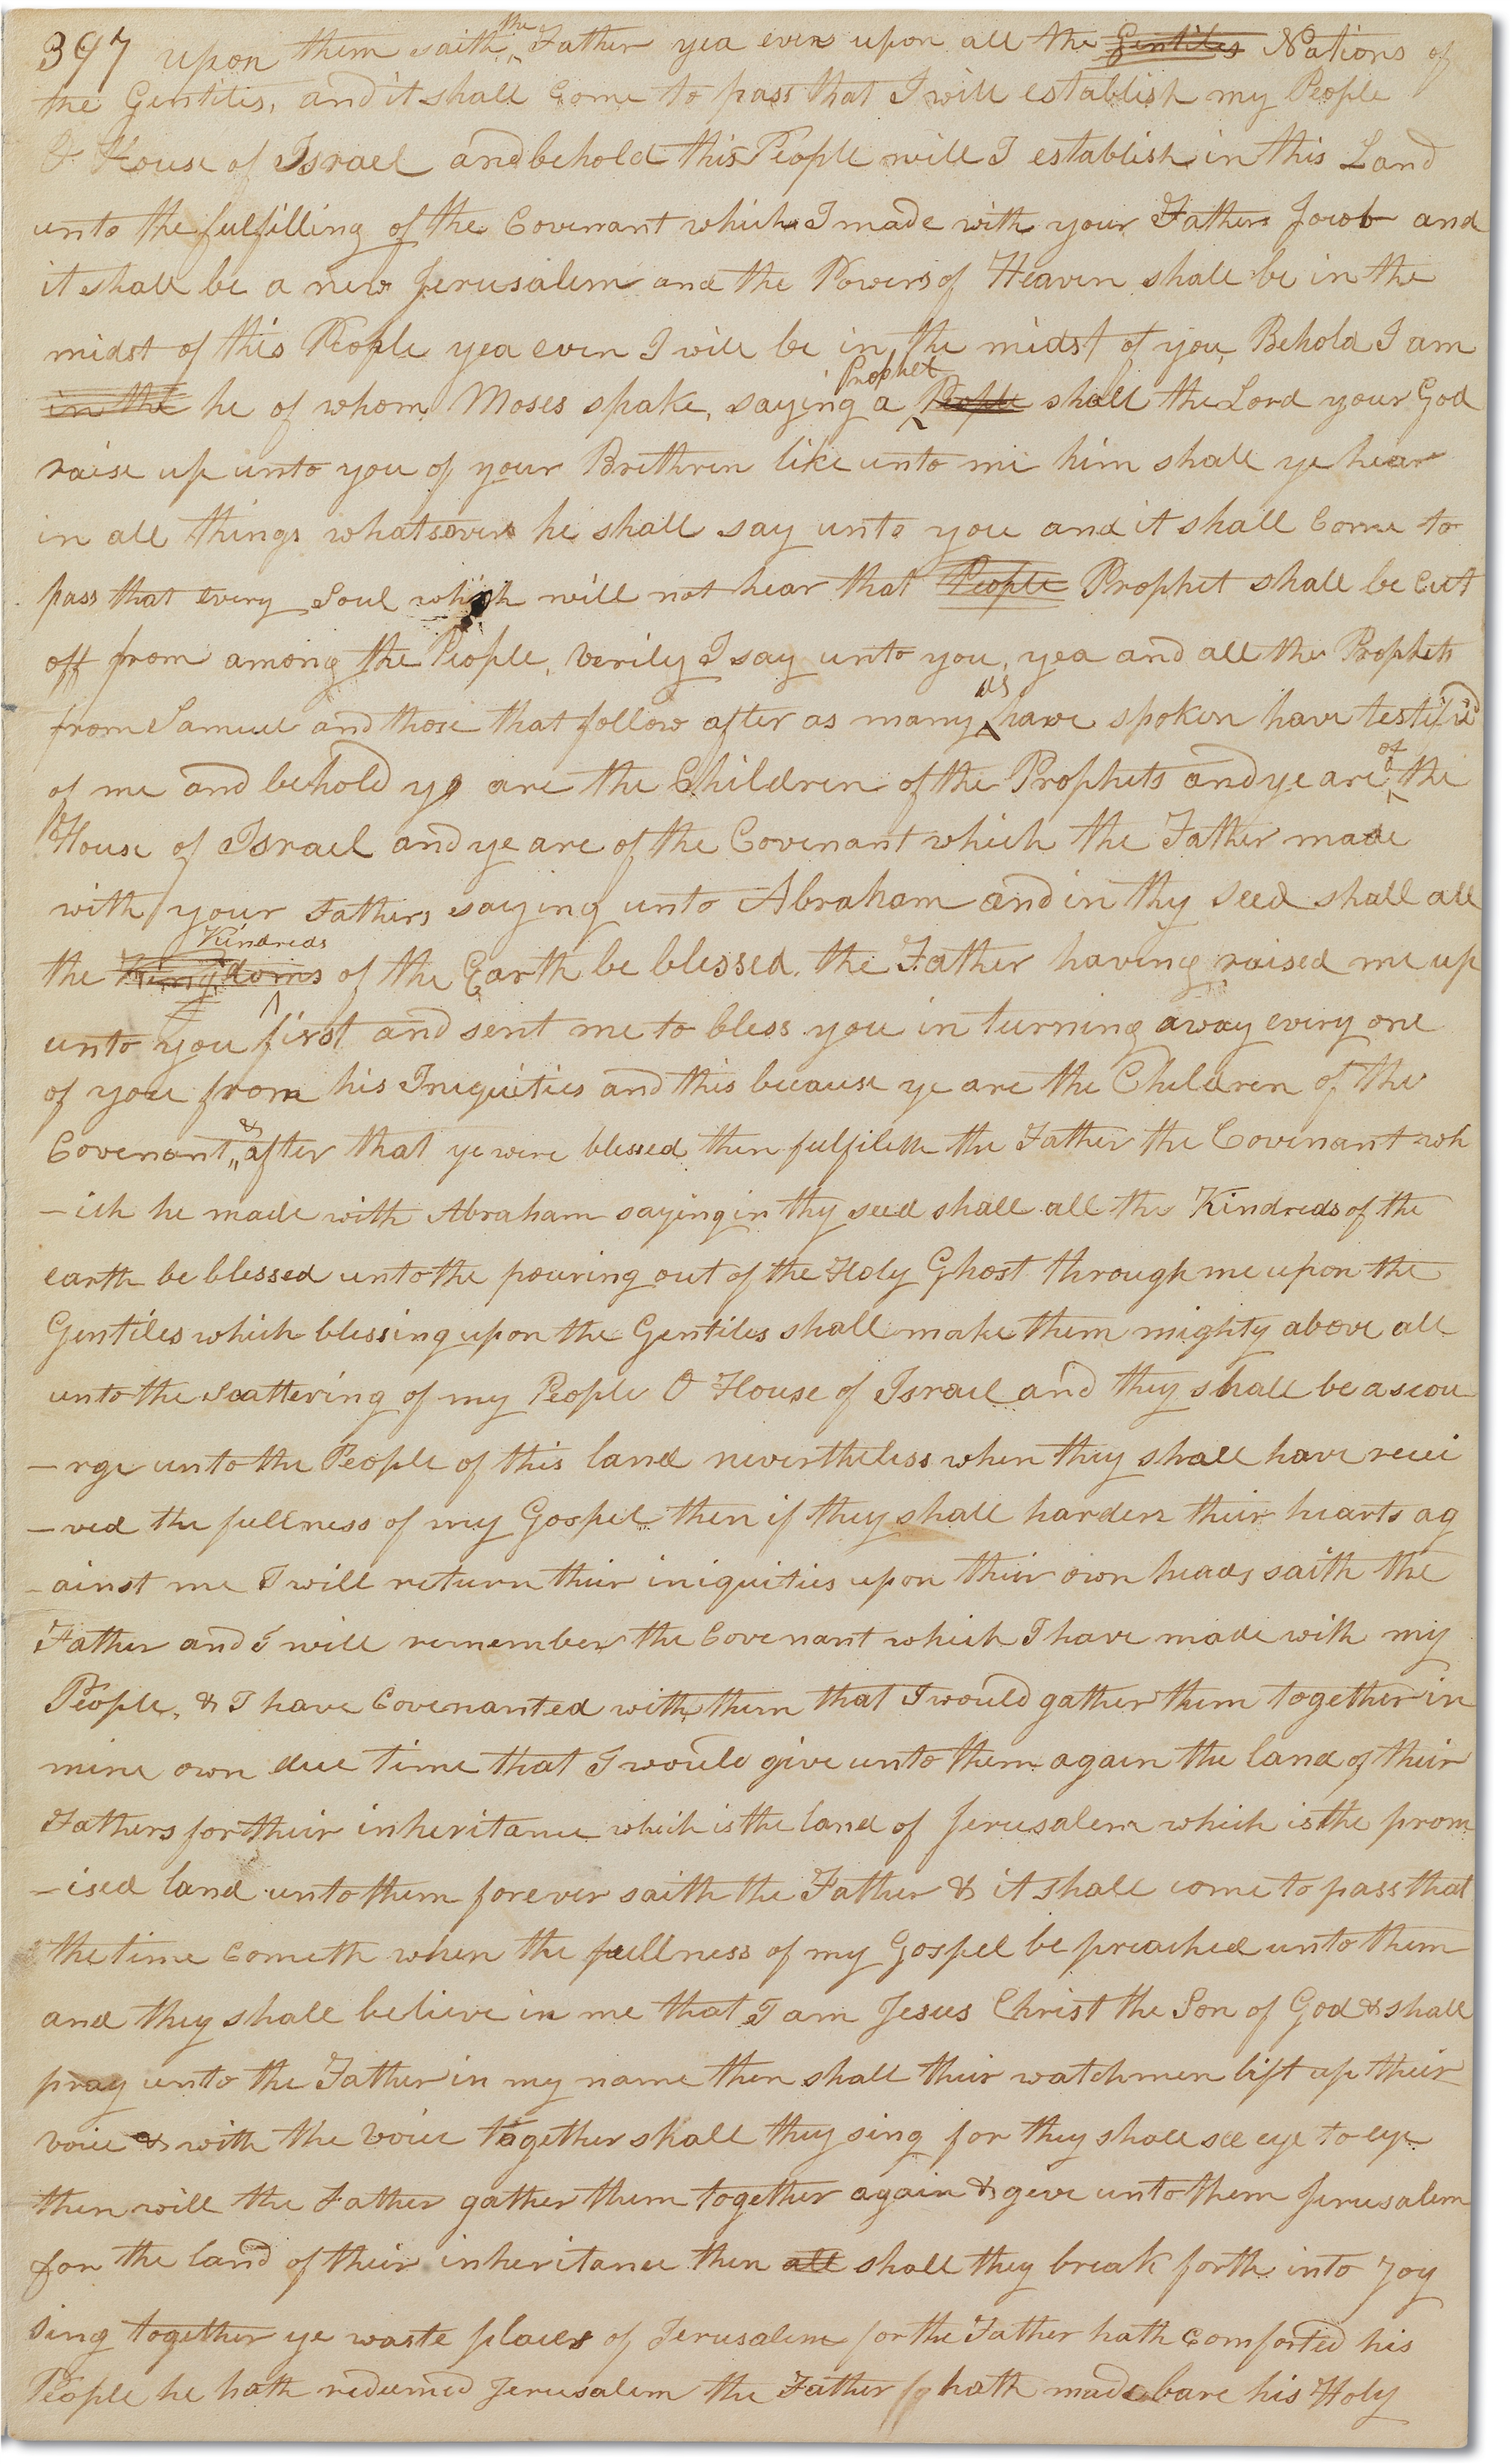 397 upon them saith the Father yea even upon all the Gentiles Nations of
the Gentiles, and it shall Come to pass that I will establish my People
O House of Israel and behold this People will I establish in this Land
unto the fulfilling of the Covenant which I made with your Father Jacob and
it shall be a new Jerusalem and the Powers of Heaven shall be in the
midst of this People yea even I will be in the midst of you, Behold I am
in the he of whom Moses spake, saying a Prophet People shall the Lord your God
raise up unto you of your Brethren like unto me him shall ye hear
in all things whatsoever he shall say unto you and it shall Come to
pass that every Soul which will not hear that People Prophet shall be Cut
off from among the People, Verily I say unto you, yea and all the Prophets
from Samuel and those that follow after as many as have spoken have testified
of me and behold ye are the Children of the Prophets and ye are of the
House of Israel and ye are of the Covenant which the Father made
with your Fathers saying unto Abraham and in thy seed shall all
the Kingdoms Kindreds of the Earth be blessed. the Father having raised me up
unto you first and sent me to bless you in turning away every one
of you from his Iniquities and this because ye are the Children of the
Covenant, & after that ye were blessed then fulfileth the Father the Covenant wh
-ich he made with Abraham saying in thy seed shall all the Kindreds of the
earth be blessed unto the pouring out of the Holy Ghost through me upon the
Gentiles which blessing upon the Gentiles shall make them mighty above all
unto the scattering of my People O House of Israel and they shall be a scou
-rge unto the People of this land nevertheless when they shall have recei
-ved the fullness of my Gospel then if they shall harden their hearts ag
-ainst me I will return their iniquities upon their own heads saith the
Father and I will remember the Covenant which I have made with my
People, & I have Covenanted with them that I would gather them together in
mine own due time that I would give unto them again the land of their
Fathers for their inheritance which is the land of Jerusalem which is the prom
-ised land unto them forever saith the Father & it shall come to pass that
the time cometh when the fullness of my Gospel be preached unto them
and they shall believe in me that I am Jesus Christ the Son of God & shall
pray unto the Father in my name then shall their watchmen lift up their
voice & with the voice together shall they sing for they shall see eye to eye
then will the Father gather them together again & give unto them Jerusalem
for the land of their inheritance then all shall they break forth into Joy
sing together ye waste places of Jerusalem for the Father hath comforted his
People he hath redeemed Jerusalem the Father hath made bare his Holy